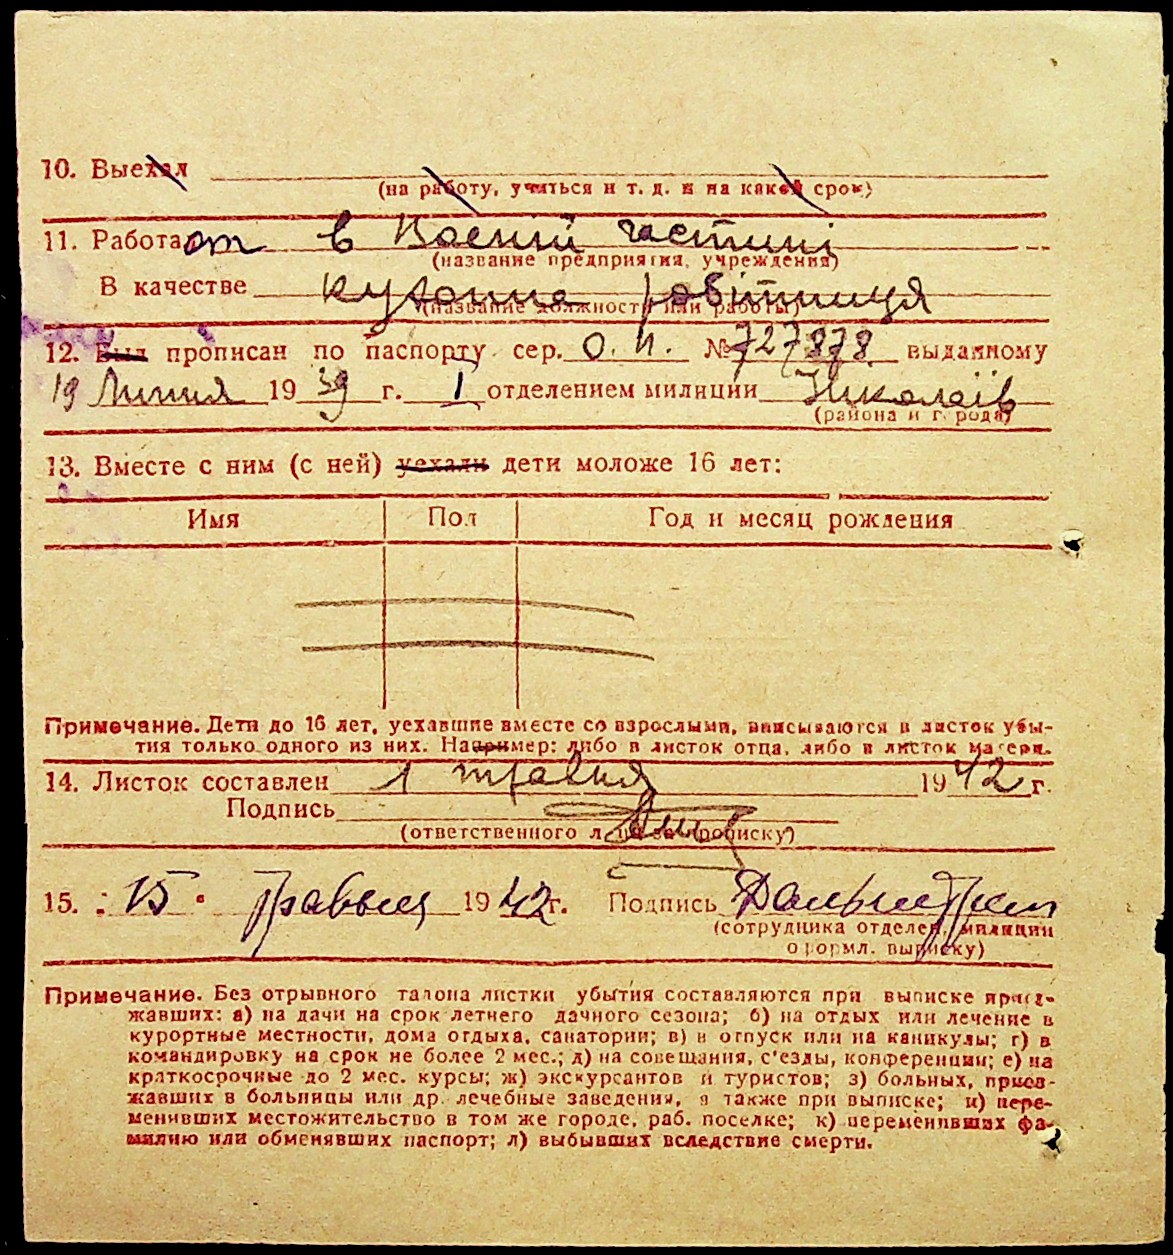 10. Выехал
(на работу, учиться и т. д. и на какой срок)
11. Работает в Воєній частині
(название предприятия, учреждения)
В качестве кухонна робітниця
(название должности или работы)
12. Был прописан по паспорту сер. О.И. № 727878 выданному
19 Липня 1939 г. I отделением милиции Николаїв
(района и города)
13. Вместе с ним (с ней) уехали дети моложе 16 лет:
Имя Пол Год и месяц рождения
Примечание. Дети до 16 лет, уехавшие вместе со взрослыми, вписываются в листок убы-
тия только одного из них. Например: либо в листок отца, либо в листок матери.
14. Листок составлен 1 травня 1942 г.
Подпись
(ответственного лица за прописку)
15. „15“ травня 1942 г. Подпись
(сотрудника отделен. милиции
оформл. выписку)
Примечание. Без отрывного талона листки убытия составляются при выписке приез-
жавших: а) на дачи на срок летнего дачного сезона; б) на отдых или лечение в
курортные местности, дома отдыха, санатории; в) в отпуск или на каникулы; г) в
командировку на срок не более 2 мес.; д) на совещания, с'езды, конференции; е) на
краткосрочные до 2 мес. курсы; ж) экскурсантов и туристов; з) больных, приез-
жавших в больницы или др. лечебные заведения, а также при выписке; и) пере-
менивших местожительство в том же городе, раб. поселке; к) переменивших фа-
милию или обменявших паспорт; л) выбывших вследствие смерти.